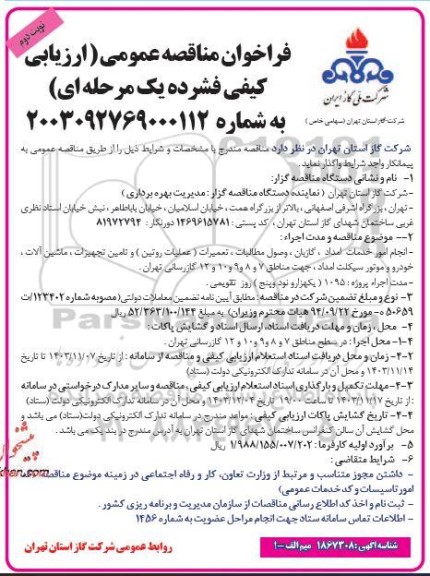 نوبت دوم
فراخوان مناقصه عمومی (ارزیابی
کیفی فشرده یک مرحله ای)
به شماره ۲۰۰۳۰۹۲۷۶۹۰۰۰۱۱۲
شرکت ملی گاز ایران
شرکت گاز استان تهران (سهامی خاص)
شرکت گاز استان تهران در نظر دارد مناقصه مندرج با مشخصات و شرایط ذیل را از طریق مناقصه عمومی به
پیمانکار واجد شرایط واگذار نماید.
۱- نام و نشانی دستگاه مناقصه گزار:
-شرکت گاز استان تهران (نماینده دستگاه مناقصه گزار: مدیریت بهره برداری)
-تهران، بزرگراه اشرفی اصفهانی، بالاتر از بزرگراه همت، خیابان اسلامیان، خیابان باباطاهر، نبش خیابان استاد نظری
غربی ساختمان شهدای گاز استان تهران، کد پستی: ۱۴۶۹۶۱۵۷۸۱ دورنگار: ۸۱۹۷۲۷۹۴
۲-- موضوع مناقصه و مدت اجراء:
-انجام امور خدمات امداد، گازبان، وصول مطالبات، تعمیرات (عملیات روتین) و تامین تجهیزات، ماشین آلات،
خودرو و موتور سیکلت امداد، جهت مناطق ۷ و ۸ و ۹ و ۱۰ و ۱۲ گازرسانی تهران.
-مدت اجراء پروژه: ۱۰۹۵ (یکهزار و نود و پنج) روز تقویمی.
۳- نوع و مبلغ تضمین شرکت در مناقصه: مطابق آیین نامه تضمین معاملات دولتی (مصوبه شماره ۱۲۳۴۰۲/ت
۵۰۶۵۹ه-مورخ ۹۴/۰۹/۲۲ هیات محترم وزیران) به مبلغ ۵۲/۳۶۳/۱۰۰/۱۴۴ ریال
۴- محل، زمان و مهلت دریافت اسناد، ارسال اسناد و گشایش پاکات:
۴-۱- محل اجرا: در سطح مناطق ۷ و ۸ و ۹ و ۱۰ و ۱۲ گازرسانی تهران.
۴-۲- زمان و محل دریافت اسناد استعلام ارزیابی کیفی و مناقصه از سامانه: از تاریخ ۱۴۰۳/۱۱/۰۷ تا تاریخ
۱۴۰۳/۱۱/۱۴ و محل آن در سامانه تدارک الکترونیکی دولت (ستاد)
۴-۳-مهلت تکمیل و بارگذاری اسناد استعلام ارزیابی کیفی، مناقصه و سایر مدارک درخواستی در سامانه
:از تاریخ ۱۴۰۳/۱۱/۱۷ تا ساعت ۱۹:۰۰ تاریخ ۱۴۰۳/۱۲/۰۴ و محل آن در سامانه تدارک الکترونیکی دولت (ستاد)
۴-۴- تاریخ گشایش پاکات ارزیابی کیفی: مواعد مندرج در سامانه تدارک الکترونیکی دولت(ستاد) می باشد و
محل گشایش آن سالن کنفرانس ساختمان شهدای گاز استان تهران به آدرس مندرج در بند یک می باشد.
۵- برآورد اولیه کارفرما: ۱/۹۸۸/۱۵۵/۰۰۷/۲۰۲ ریال
۶- شرایط متقاضی:
- داشتن مجوز متناسب و مرتبط از وزارت تعاون، کار و رفاه اجتماعی در زمینه موضوع مناقصه
امور تاسیسات و کد خدمات عمومی)
- ثبت نام و اخذ کد اطلاع رسانی مناقصات از سازمان مدیریت و برنامه ریزی کشور.
- اطلاعات تماس سامانه ستاد جهت انجام مراحل عضویت به شماره ۱۴۵۶
شناسه آگهی: ۱۸۶۷۳۰۸ میم الف-۱
روابط عمومی شرکت گاز استان تهران